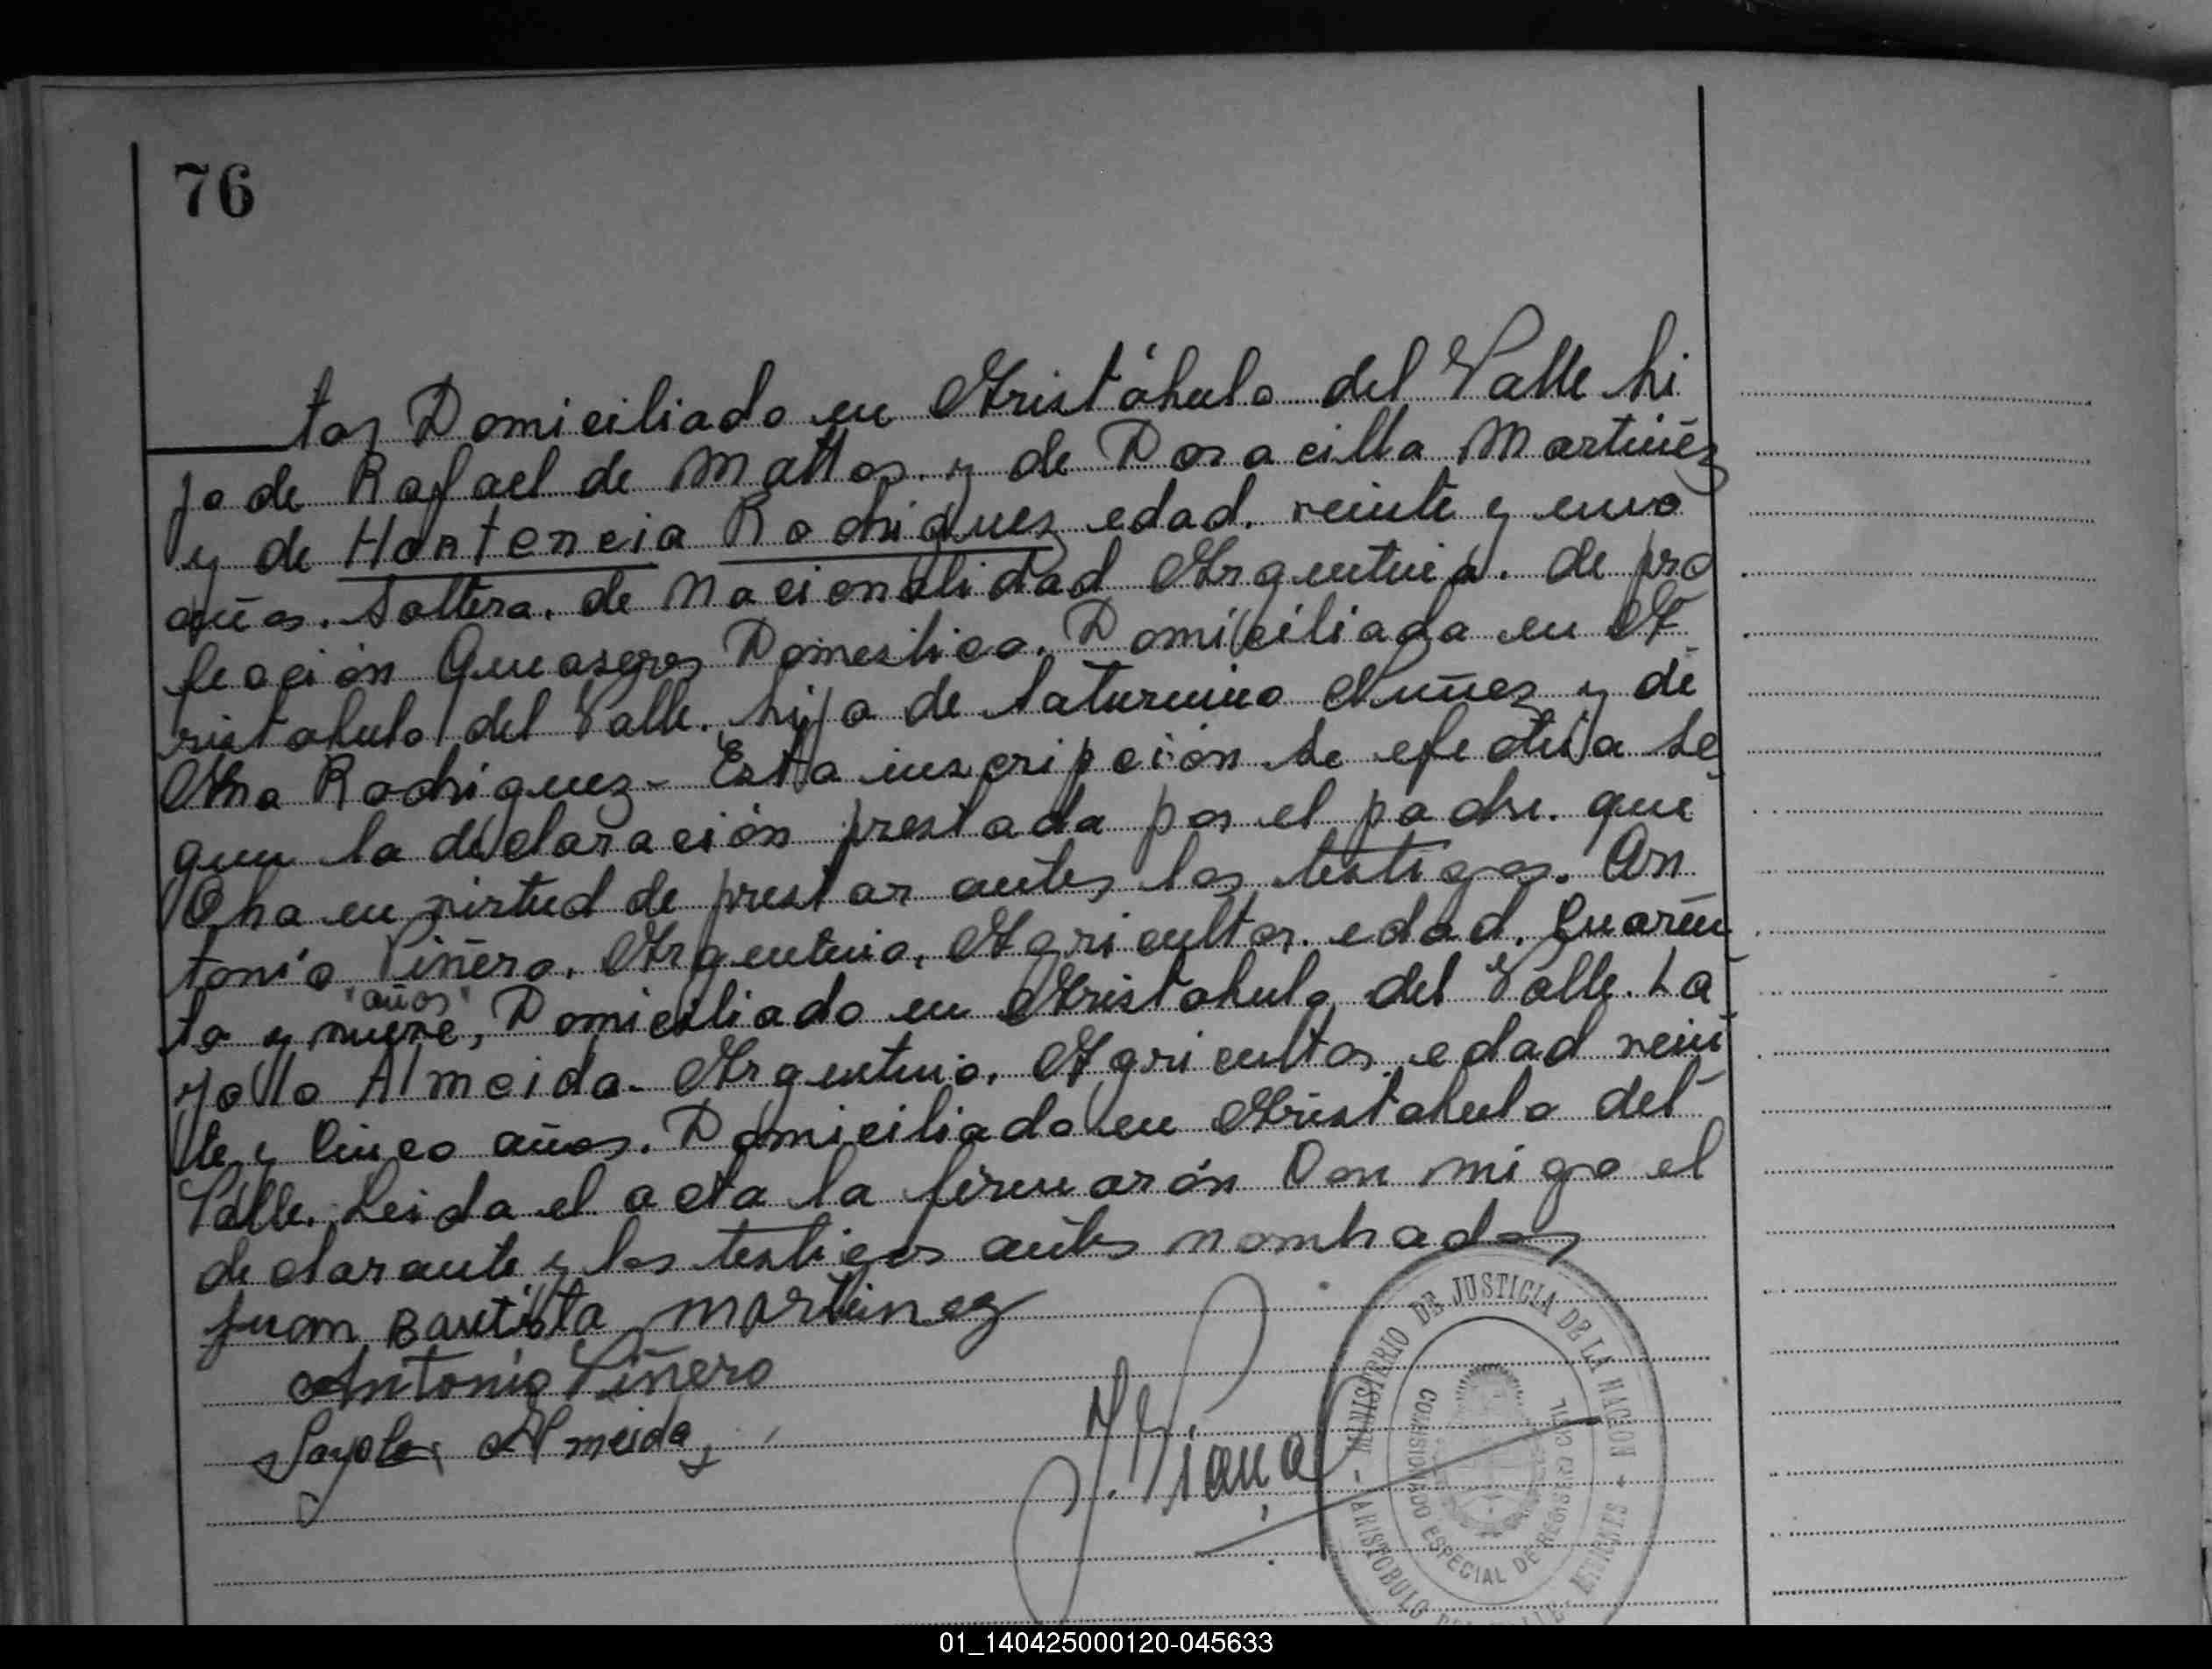 76
tor Domiciliado en Aristóbulo del Valle hi
jo de Rafael de Mattos. y de Doracilla Martinéz
y de Hortencia Rodriguez edad. veinte y uno
años. Soltera. de Nacionalidad Argentina. de pro
feción Queaseres Domestico. Domiciliada en A
ristobulo del Valle. hija de Saturnino Nuñez y de
Ana Rodriguez - Esta inscripción se efectúa se
gun la declaración prestada por el padre. que
Oha en virtud de prestar antes los testigos. An
tonio Piñero. Argentino. Agricultor. edad. Cuaren
"años"
ta y nueve, Domiciliado en Aristobulo del Valle. La
yolla Almeida - Argentino. Agricultor edad vein
te y Cinco años. Domiciliado en Aristobulo del
Valle. Leida el acta la firmarón Con migo el
declarante y los testigos antes nombrados
Juan Bautista Martinez
Antonio Piñero
Almeida
MINISTERIO DE JUSTICIA DE LA NACION
COMISIONADO ESPECIAL DE REGISTRO CIVIL
ARISTOBULO DEL VALLE - MISIONES
01_140425000120-045633